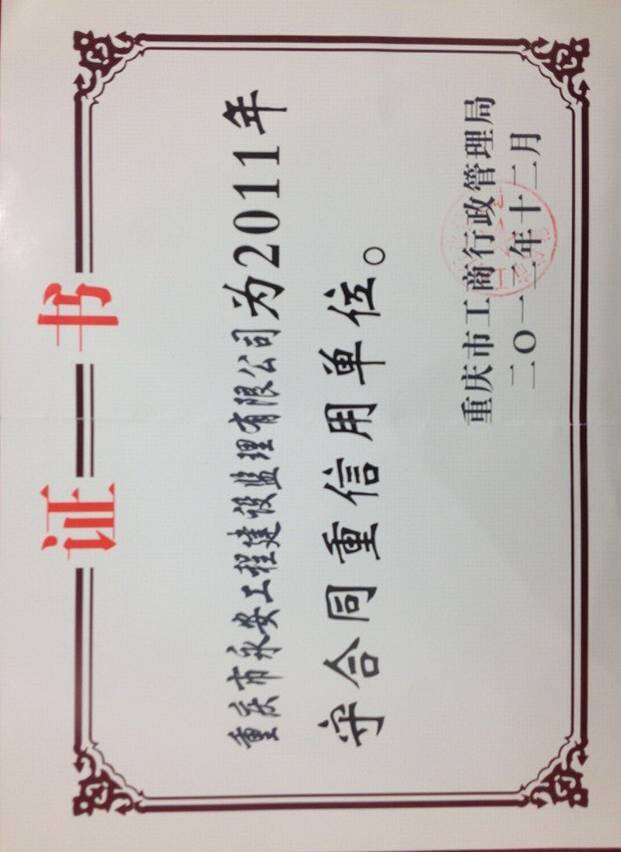 证书
重庆市永安工程建设监理有限公司为2011年
守合同重信用单位。
重庆市工商行政管理局
二〇一二年十二月